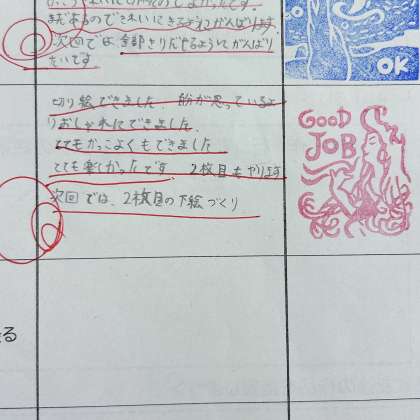 まだあるのできれいにきるようにがんばります。
次回では、全部きりだせるようにがんばり
たいです
OK
切り絵できました。 紙が思っているよ
りおしゃれにできました。
とてもかっこよくもできました
とても楽しかったです 2枚目もやります
次回では、2枚目の下絵づくり
GOOD
JOB
る